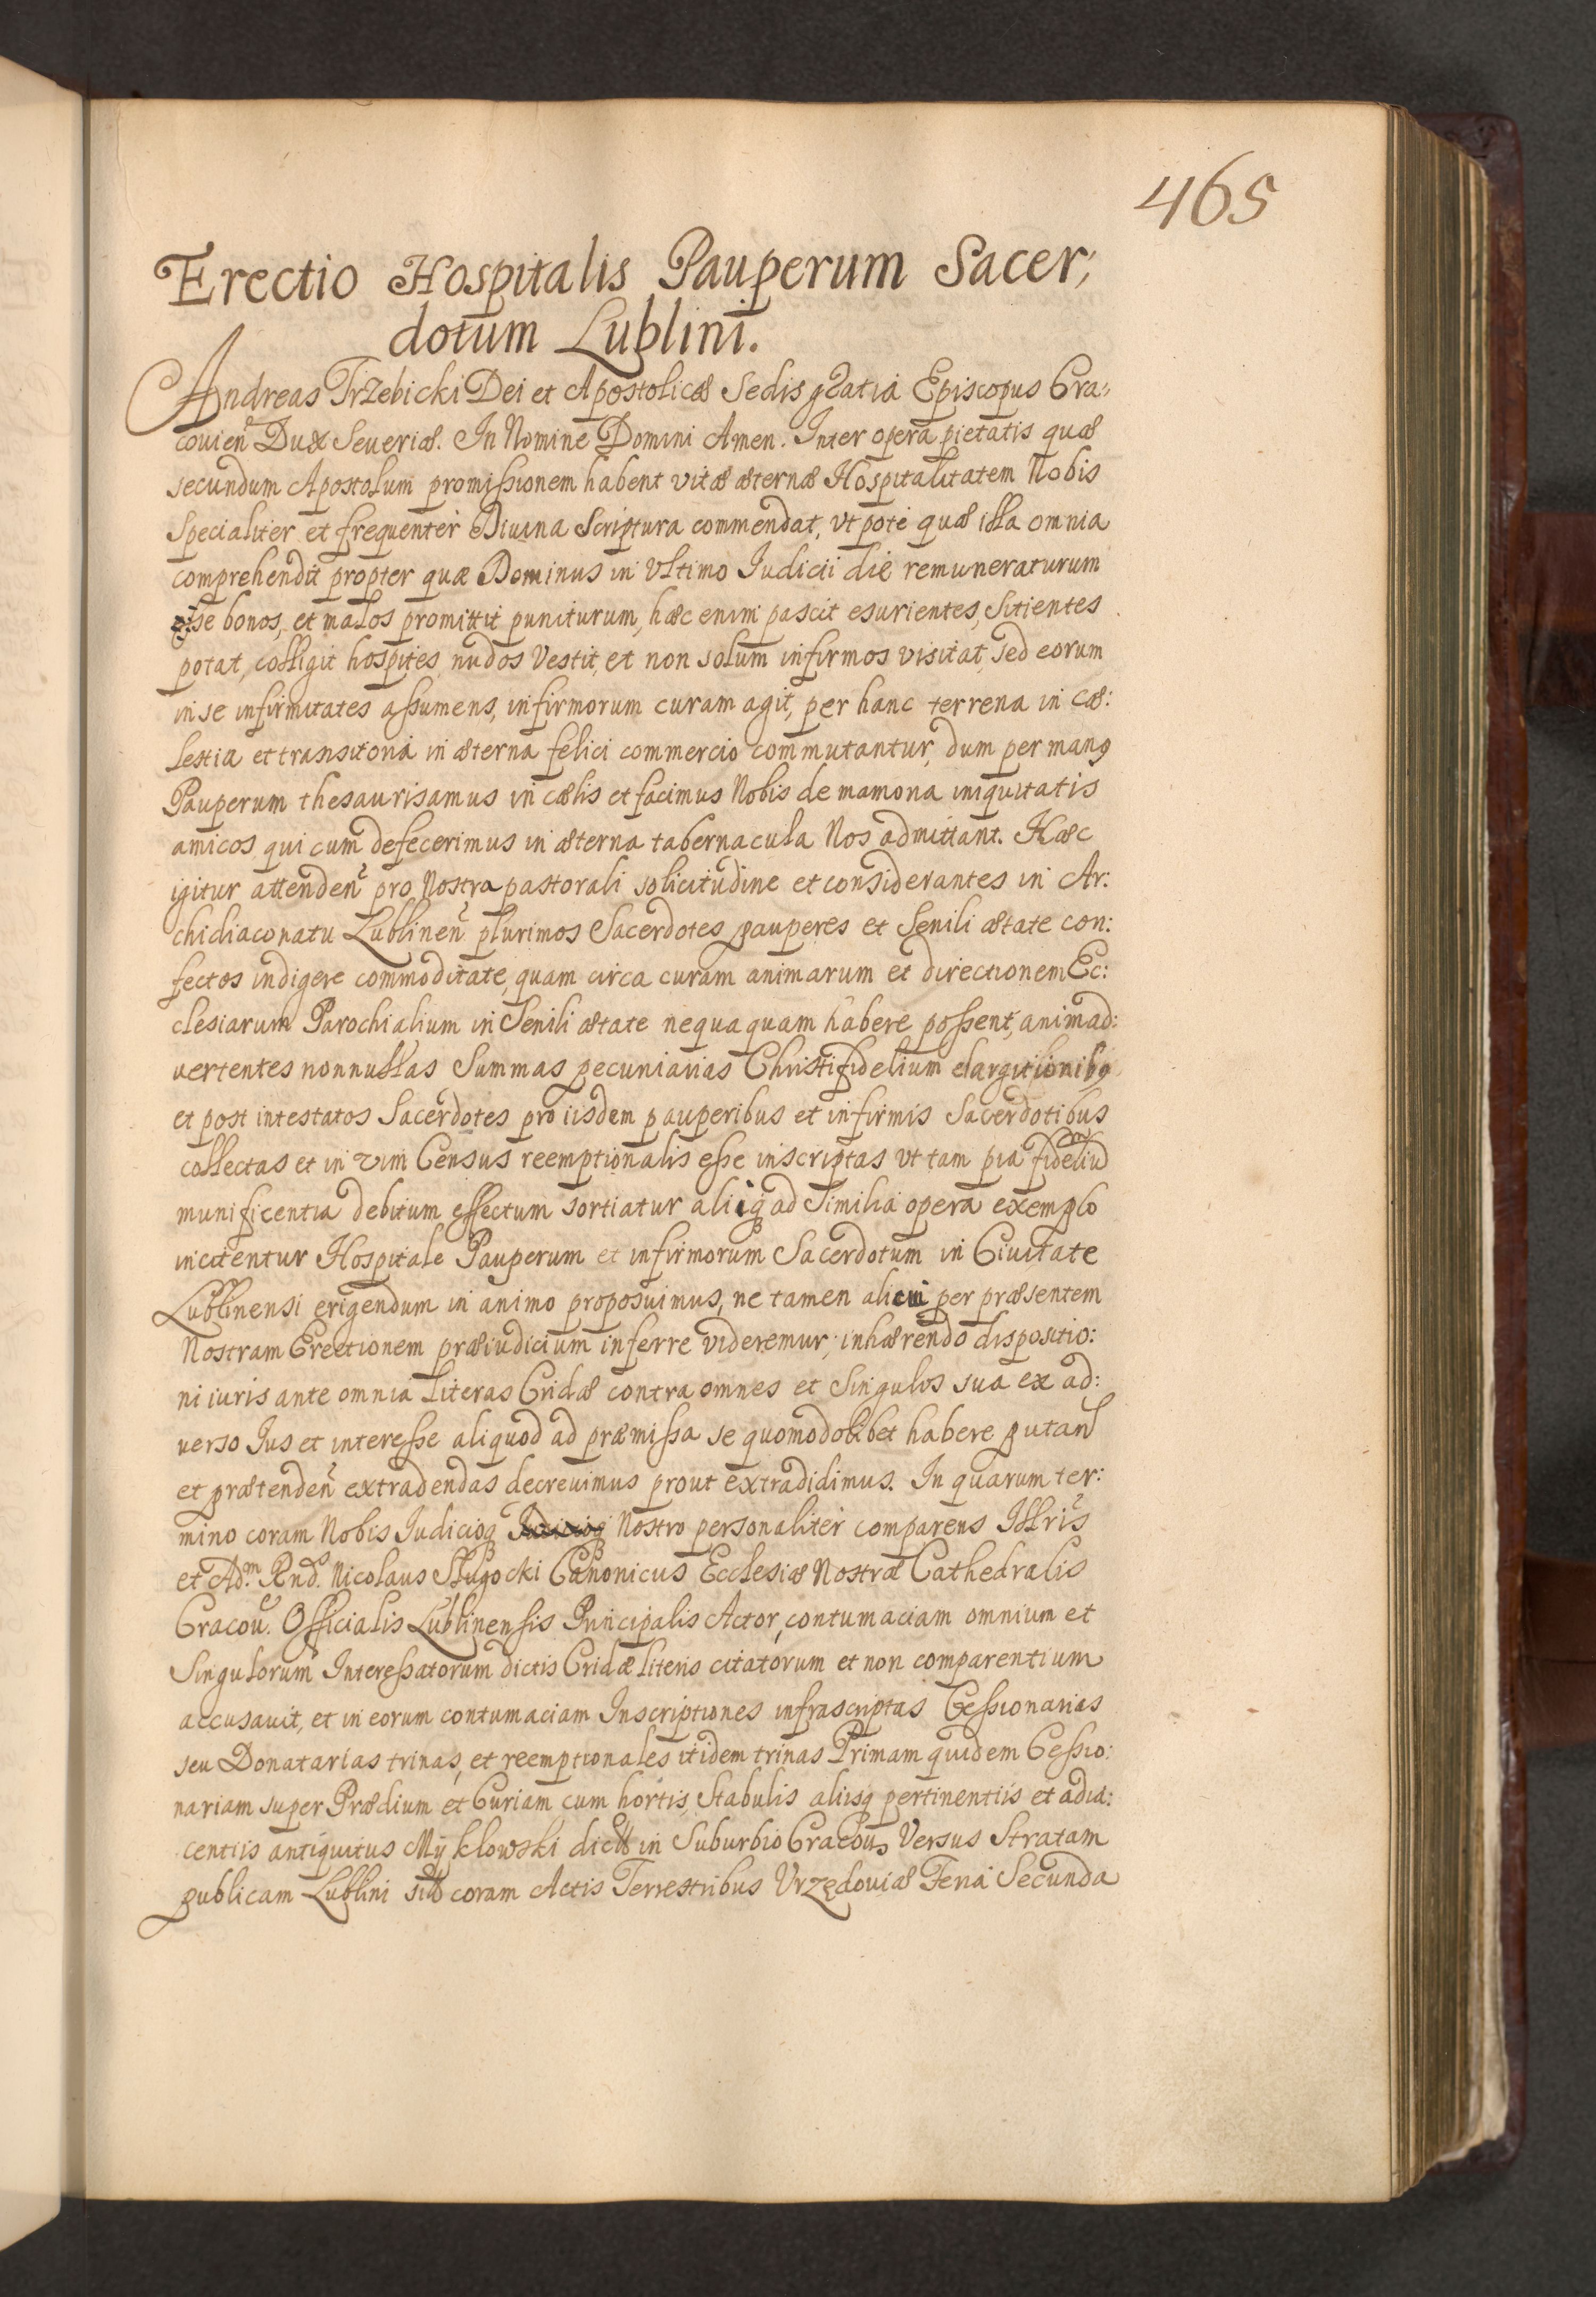 465
Erectio Hospitalis Pauperum Sacer;
dotum Lublini.
Andreas Trzebicki Dei et Apostolicæ Sedis gratia Episcopus Cra:
couien Dux Seueriæ. In Nomine Domini Amen. Inter opera pietatis quæ
secundum Apostolum promissionem habent vitæ æternæ Hospitalitatem Nobis
specialiter et frequenter Diuina Scriptura commendat, vt pote quæ illa omnia
comprehendit propter quæ Dominus in Vltimo Iudicii die remuneraturum
se bonos, et malos promittit puniturum, hæc enim pascit esurientes, sitientes
potat, colligit hospites, nudos Vestit, et non solum infirmos visitat, sed eorum
in se infirmitates assumens, infirmorum curam agit, per hanc terrena in cæ:
lestia et transitoria in æterna felici commercio commutantur, dum per man9
Pauperum thesaurisamus in cælis et facimus Nobis de mamona iniquitatis
amicos qui cum defecerimus in æterna tabernacula Nos admittant. Hæc
igitur attenden pro Nostra pastorali solicitudine et considerantes in Ar:
chidiaconatu Lublinen plurimos Sacerdotes pauperes et Senili ætate con:
fectos indigere commoditate, quam circa curam animarum et directionem Ec:
clesiarum Parochialium in Senili ætate nequaquam habere possent, animad:
vertentes nonnullas Summas pecuniarias Christi fidelium elargitionib9
et post intestatos Sacerdotes pro iisdem pauperibus et infirmis Sacerdotibus
collectas et in vim Census reemptionalis esse inscriptas vt tam pia fideliu
munificentia debitum effectum sortiatur aliiq ad Similia opera exemplo
incitentur Hospitale Pauperum et infirmorum Sacerdotum in Ciuitate
Lublinensi erigendum in animo proposuimus, ne tamen alicui per præsentem
Nostram Erectionem præiudicium inferre videremur; inhærendo dispositio:
ni iuris ante omnia Literas Cridæ contra omnes et Singulos sua ex ad:
verso Ius et interesse aliquod ad præmissa se quomodolibet habere putan
et prætenden extradendas decreuimus prout extradidimus. In quarum ter:
mino coram Nobis Iudicioq Nostro personaliter comparens Illris
et Ad.m Rnd.s Nicolaus Sługocki Canonicus Ecclesiæ Nostræ Cathedralis
Cracou. Officialis Lublinensis Principalis Actor, contumaciam omnium et
Singulorum Interessatorum dictis Cridæ literis citatorum et non comparentium
accusauit, et in eorum contumaciam Inscriptiones infrascriptas Cessionarias
seu Donatarias trinas, et reemptionales itidem trinas Primam quidem Cessio:
nariam super Prædium et Curiam cum hortis, Stabulis aliisq pertinentiis et adia:
centiis antiquitus Myklowski dict in Suburbio Cracou Versus Stratam
publicam Lublini sit coram Actis Terrestribus Vrzędouiæ Feria Secunda